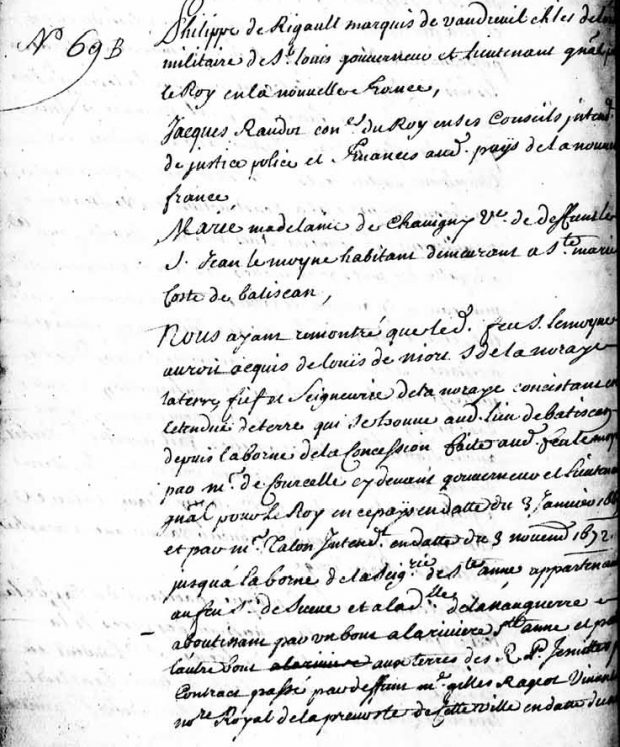 N.º 69 B
Philippe de Rigault marquis de vaudreuil &
militaire de St. louis gouverneur et lieutenant gnãl
le Roy en la nouvelle France,
Jacques Raudot conr. du Roy en ses Conseils jntend.
de justice police et Finances aud. pays de la
france
Marie madelaine de Chavigny Ve. de deffunt le
S. Jean le moyne habitant demeurant a Ste. marie
Coste de batiscan,
Nous ayant remontré que led. feu S. lemoyne
auroit acquis de louis de niort S. de la noraye
la terre, fief et Seigneurie de la noraye concistant en
letendue de terre qui se trouve aud. lieu de batiscan
depuis la borne de la Concession faite aud. feu
par mr. de Courcelle cy devant gouverneur et
gnãl pour le Roy en ce pays en datte du 3 Janvier
et par mr. Talon Intend. en datte du 3 novemb 1672.
jusqu'a la borne de la Seigrie. de Ste anne
au feu S. de Sueue et a lad. lle. de lananguerre
aboutissant par un bout a la riviere Ste anne et
lautre bout a la riviere aux terres des R. P. Jesuittes
Contract passé par deffunt me. gilles Rageot
nore Royal de la prevosté de Cette ville en datte du